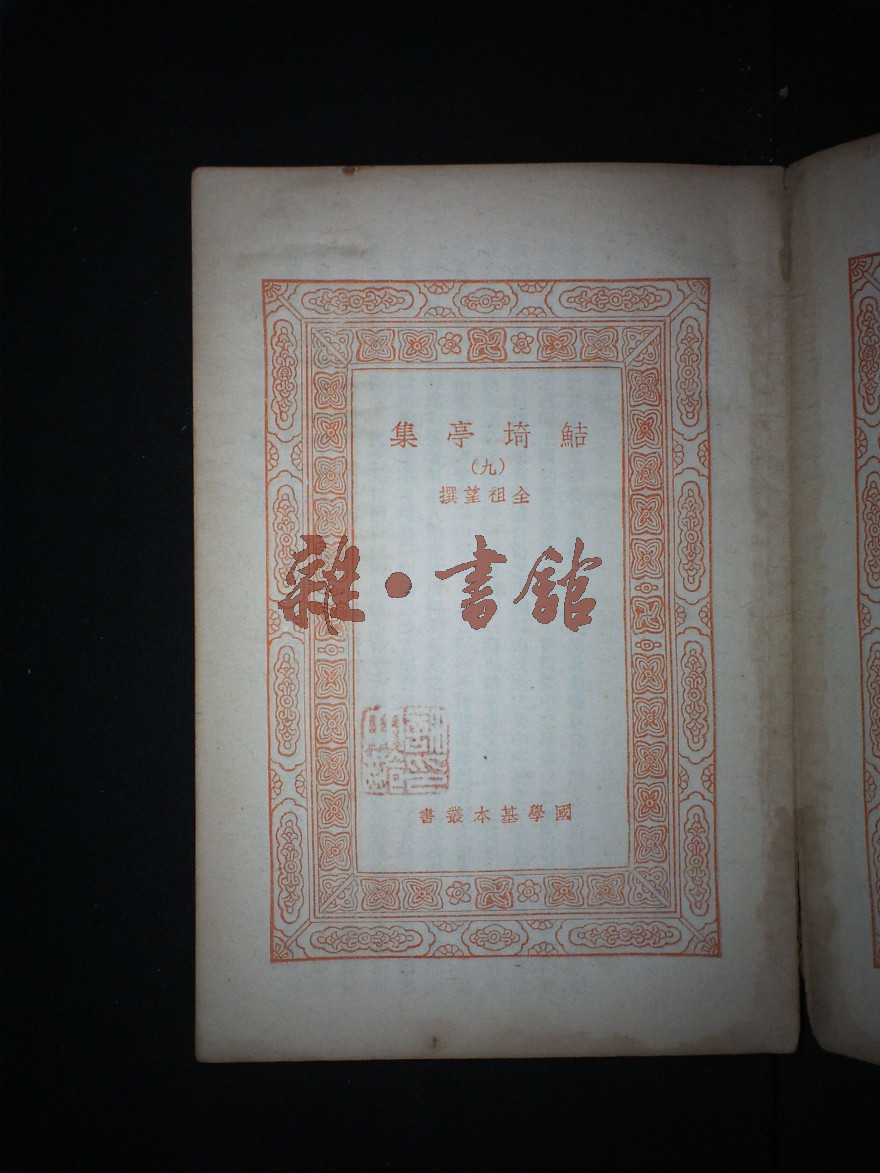 鮚埼亭集
(九)
全祖望撰
雜·書館
國學基本叢書